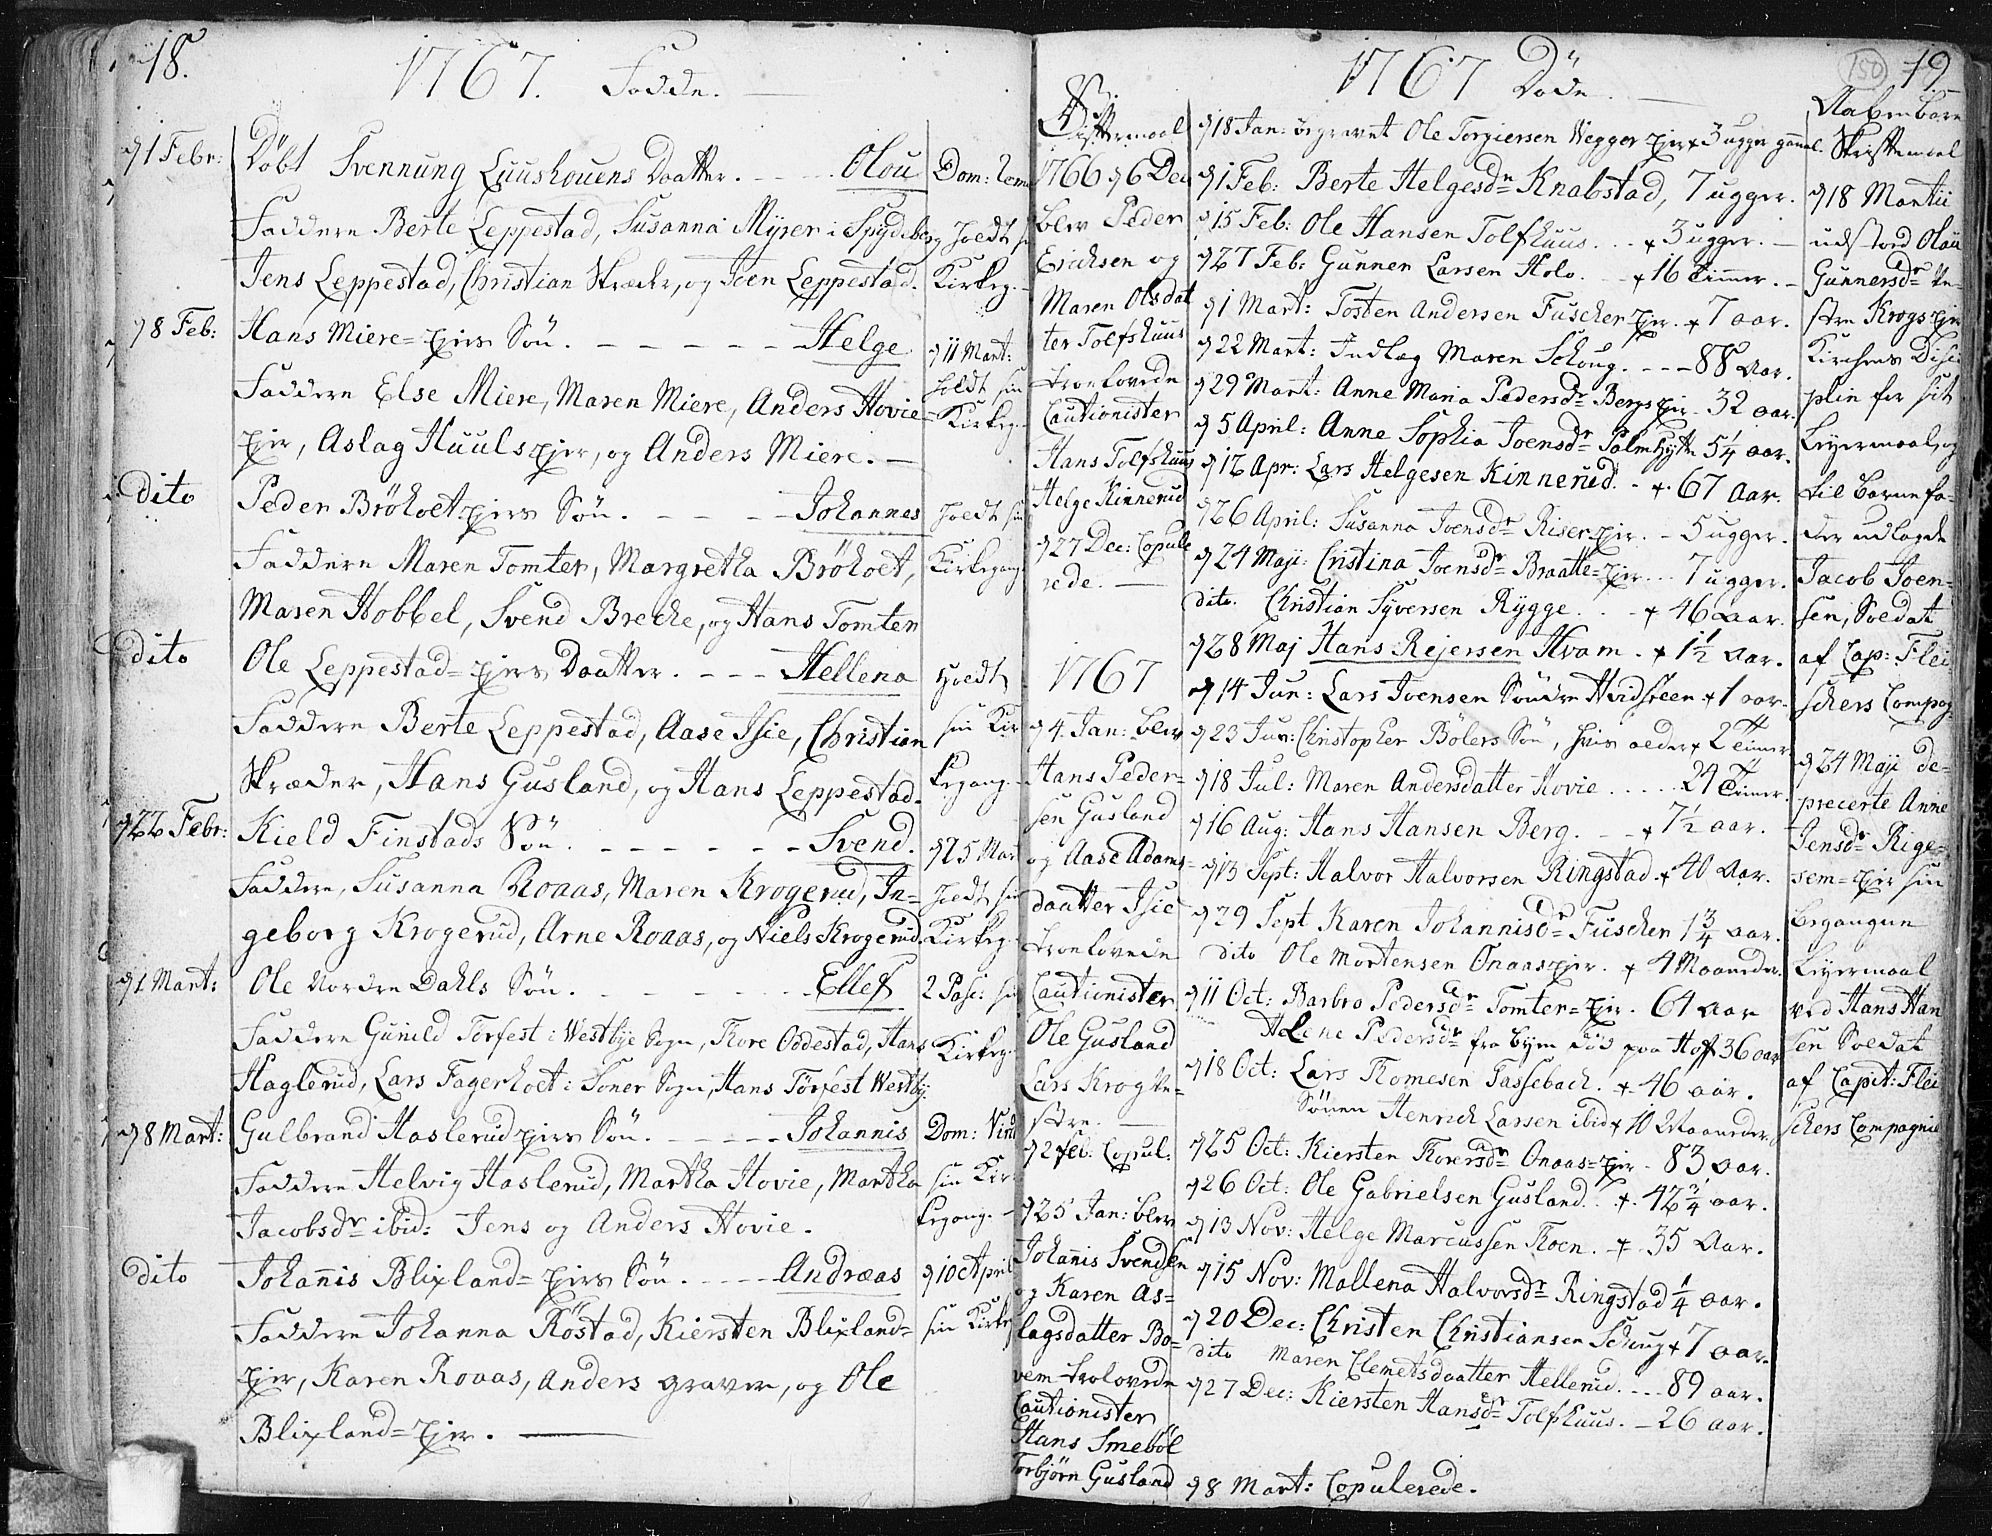 18.
1767. Födde.
d 1 Febr: Döbt Svennung Luushouens Daatter. Olou
Faddere Berte Leppestad, Susanna Myrer i Spydeberg
Jens Leppestad, Christian Skræder, og Joen Leppestad.
Dom:
Hoedt sin
Kirkeg.
d 8 Feb: Hans Miere=Ejers Sön. Helge
Faddere Else Miere, Maren Miere, Anders Hovie=
Ejer, Aslag Huuls Ejer, og Anders Miere.
d 11 Mart:
holdt sin
Kirkeg.
Dito Peder Bröhoet Ejers Sön. Johannes
Faddere Maren Tomter, Margretha Bröhoet,
Maren Hobbel, Svend Breche, og Hans Tomter
Hoedt sin
Kirkegang.
Dito Ole Leppestad=Ejers Daatter. Hellena
Faddere Berte Leppestad, Aase Isie, Christian
Skræder, Hans Gusland, og Hans Leppestad.
Hoedt
sin Kir
kegang.
d 22 Febr: Kield Finstads Sön. Svend.
Faddere, Susanna Roaas, Maren Krogerud, In=
geborg Krogerud, Arne Roaas, og Niels Krogerud.
d 25 Mar
hoedt sin
Kirkeg.
d 1 Mart: Ole Nordre Dahls Sön. Ellef
Faddere Gunild Torfest i Westbye Sogn, Thore Oddestad, Hans
Haglerud, Lars Fagerhoet i Soner Sogn, Hans Törfest Westby.
2 Pase: sin
Kirkeg.
d 8 Mart: Gulbrand Haslerud Ejers Sön. Johannis
Faddere Helvig Haslerud, Martha Hovie, Martha
Jacobsdr ibid: Jens og Anders Hovie.
Dom:
sin Kir
kegang.
Dito Johannis Blixland=Ejers Sön. Andræas
Faddere Johanna Röstad, Kiersten Blixland=
Ejer, Karen Roaas, Anders graver, og Ole
Blixland=Ejer.
d 10 April
sin Kirkeg
1766 d 6 Dec
blev Peder
Erichsen og
Maren Olsdat
ter Tolfshuus
troelovede
Cautionister
Hans Tolfshuus
Helge Kinnerud
d 27 Dec: Copule
rede.
1767
d 4. Jan: blev
Hans Peder=
sen Gusland
og Aase Adams=
daatter Isie
troelovede
Cautionister
Ole Gusland
Lars Krog Ve=
stre.
d 2 feb: Copul:
d 25 Jan: blev
Johannis Svendsen
og Karen As=
lagsdatter Bo=
vem trolovede
Cautionister
Hans Smeböl
Torbjörn Gusland
1767 Döde.
150
19
d 18 Jan: begravet Ole Torgiersen Wegger Ejer + 3 ugger gamel.
d 1 Feb: Berte Helgesdr Knabstad, 7 ugger.
d 15 Feb: Ole Hansen Tolfhuus. + 3 ugger.
d 27 Feb: Gunner Larsen Holo. + 16 Timer.
d 1 Mart: Tosten Andersen Fuscher Ejer. + 7 aar.
d 22 Mart: Indlæg Maren Schoug. 88 Aar.
d 29 Mart: Anne Maria Pedersdr Bergs Ejer. 32 aar.
d 5 April: Anne Sophia Joensdr Palmhytte 5¼ aar.
d 12 Apr: Lars Helgesen Kinnerud. + 67 Aar.
d 26 April: Susanna Joensdr Riser Ejer. 5 ugger.
d 24 Maji: Cristina Joensdr Braatte=Ejer. 7 ugger.
dito. Christian Syversen Rygge. + 46 aar.
d 28 Maj Hans Rejersen Hvam. + 1½ Aar.
d 14 Jun: Lars Joensen Söndre Hvidsteen + 1 aar.
d 23 Jun: Christopher Bölers Sön, hvis alder + 2 Timer
d 18 Jul: Maren Andersdatter Hovie. 24 Timer.
d 16 Aug: Hans Hansen Berg. + 7½ aar.
d 13 Sept: Halvor Halvorsen Ringstad. + 40 Aar.
d 29 Sept Karen Johannisdr Fuscher 1¾ aar.
dito Ole Mortensen Onaas Ejer. + 4 Maaneder.
d 11 Oct: Barbro Pedersdr Tomter=Ejer. 61 Aar
Helene Pedersdr fra byen död paa Hoff 36 aar
d 18 Oct: Lars Thomesen Tassebach. + 46 aar.
Sönen Henrich Larsen ibid + 10 Maaneder.
d 25 Oct: Kiersten Thorersdr Onaas=Ejer. 83 aar.
d 26 Oct: Ole Gabrielsen Gusland. + 42¾ aar.
d 13 Nov: Helge Marcussen Thoen. + 35 Aar.
d 15 Nov: Mallena Halvorsdr Ringstad ¼ aar.
d 20 Dec: Christen Christiansen Schoug + 7 aar.
dito Maren Clemetsdaatter Hellerud. 89 aar.
d 27 Dec: Kiersten Hansdr Tolfhuus. 26 aar.
d 8 Mart: Copulerede.
Aabenbare
Skriftemael
d 18 Martii
udstod Olou
Gunnersdr Ve=
stre Krogs Ejer
Kirchens Disci
plin for sit
Leyermaal, og
til barnefa=
der udlagde
Jacob Joen=
sen, Soldat
af Cap: Flei
schers Compag:
d 24 Maji de=
precerte Anne
Jensdr Rige=
sem=Ejer sin
begangne
Leyermaal
ved Hans Han
sen Soldat
af Capit: Flei
schers Compagnie